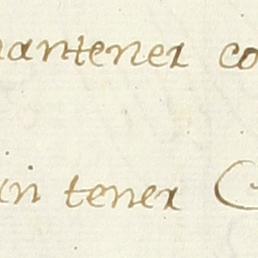 mantener co
in tener C